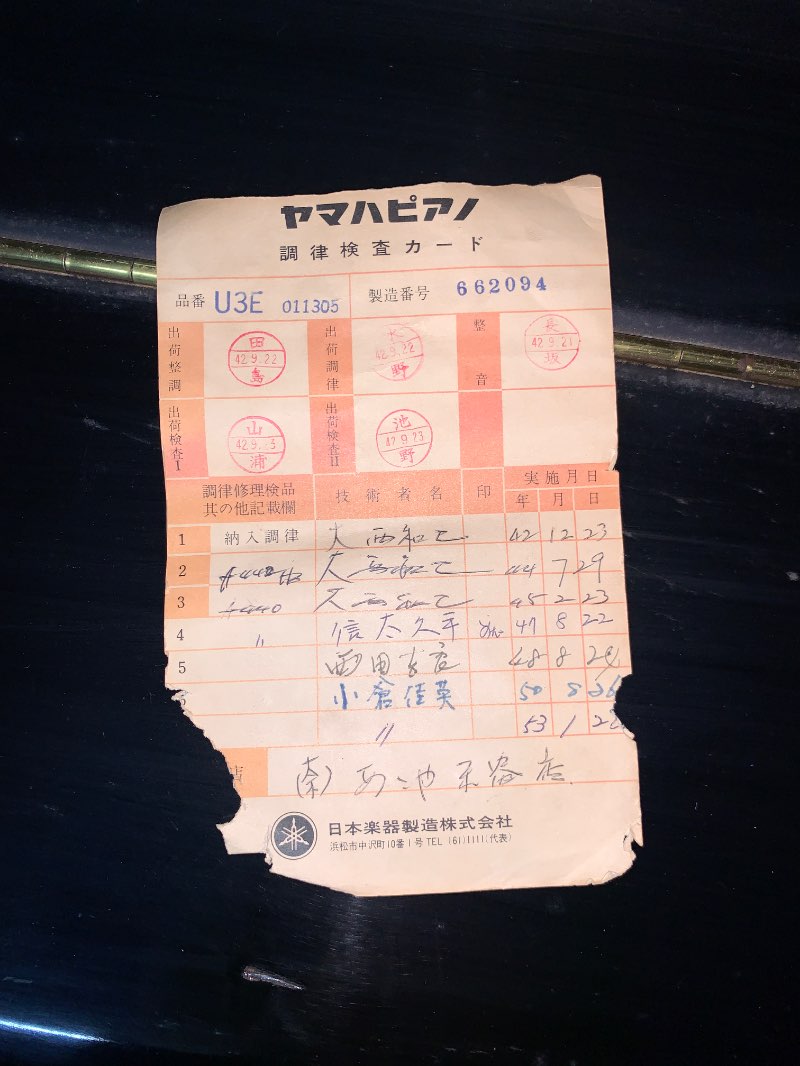 ヤマハピアノ
調律検査カード
品番 U3E 011305 製造番号 662094
出荷整調 田島 42.9.22 出荷調律 野 42.9.22 整音 長坂 42.9.21
出荷検査I 山浦 42.9. 3 出荷検査II 池野 42.9.23
調律修理検品其の他記載欄 技術者名 印 実施月日
年 月 日
1 納入調律 大西和 42 12 23
2 44 7 29
3 A440 45 2 23
4 〃 信太久 47 8 22
5 西田 48 8
小倉佳英 50 8 26
〃 53 1
店 楽器店
日本楽器製造株式会社
浜松市中沢町10番1号 TEL (61)1111(代表)